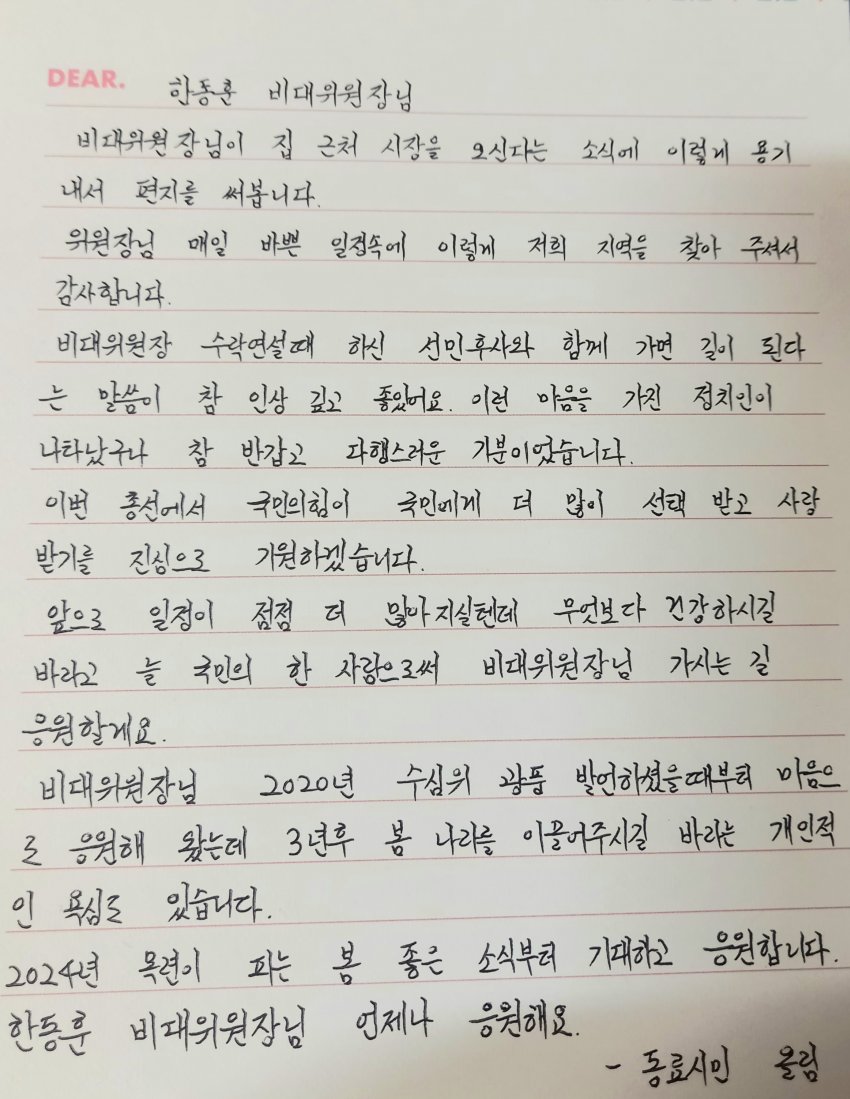 DEAR. 한동훈 비대위원장님
비대위원장님이 집 근처 시장을 오신다는 소식에 이렇게 용기
내서 편지를 써봅니다.
위원장님 매일 바쁜 일정속에 이렇게 저희 지역을 찾아 주셔서
감사합니다.
비대위원장 수락연설때 하신 선민후사와 함께 가면 길이 된다
는 말씀이 참 인상 깊고 좋았어요. 이런 마음을 가진 정치인이
나타났구나 참 반갑고 다행스러운 기분이었습니다.
이번 총선에서 국민의힘이 국민에게 더 많이 선택 받고 사랑
받기를 진심으로 기원하겠습니다.
앞으로 일정이 점점 더 많아지실텐데 무엇보다 건강하시길
바라고 늘 국민의 한 사람으로써 비대위원장님 가시는 길
응원할게요.
비대위원장님 2020년 수심위 광풍 발언하셨을때부터 마음으
로 응원해 왔는데 3년후 봄 나라를 이끌어주시길 바라는 개인적
인 욕심도 있습니다.
2024년 목련이 피는 봄 좋은 소식부터 기대하고 응원합니다.
한동훈 비대위원장님 언제나 응원해요.
- 동료시민 올림